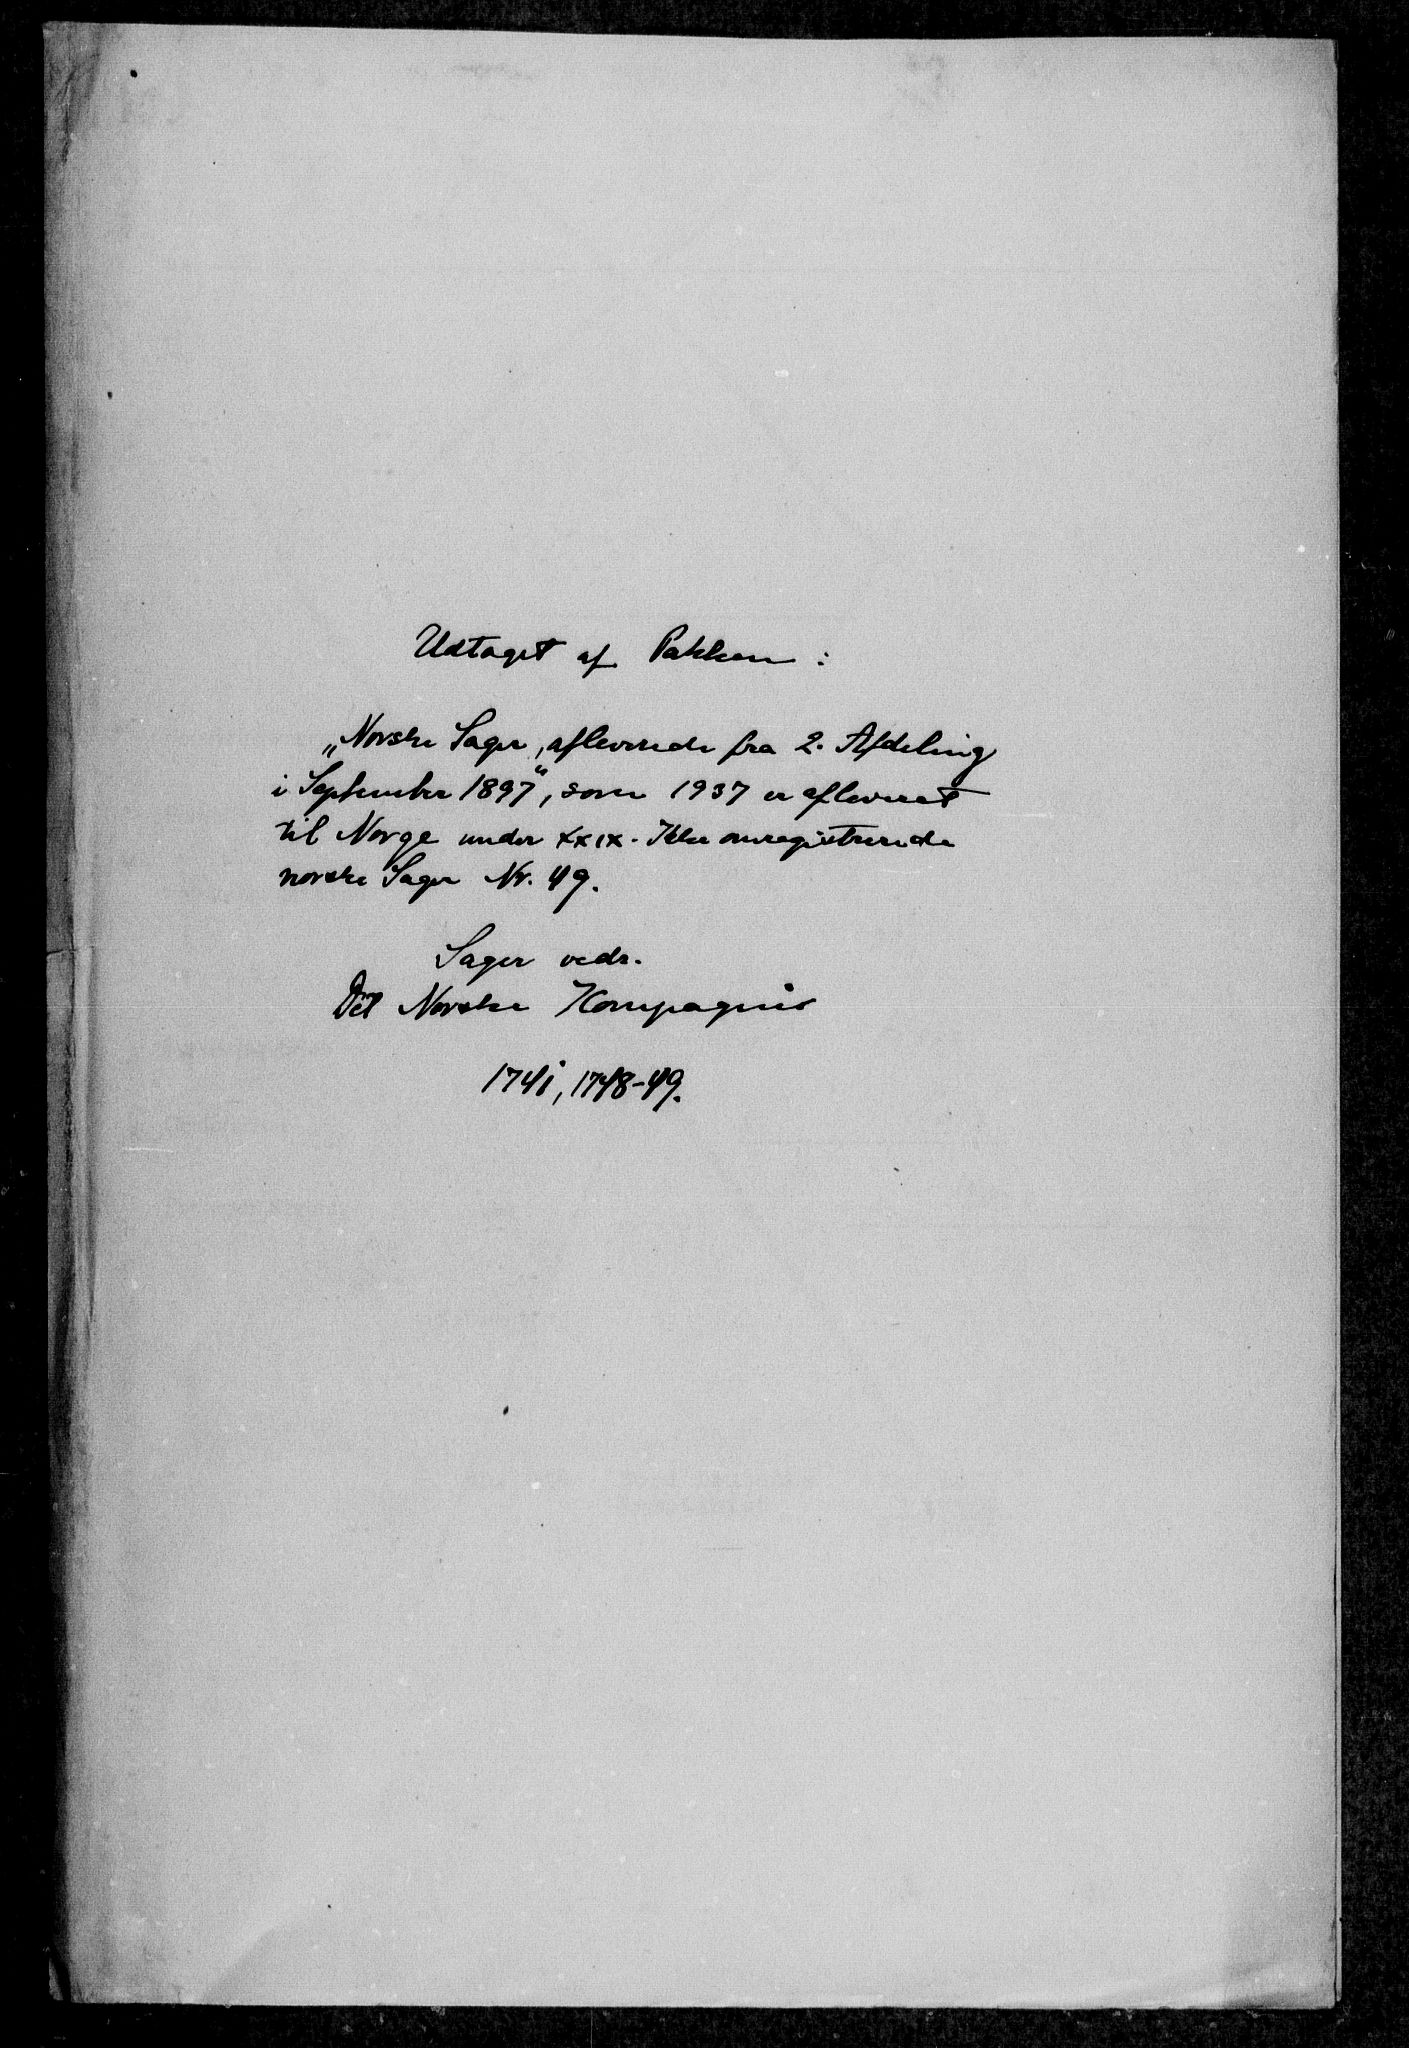 Udtaget af Pakken :
„Norske Sager, afleverede fra 2. Afdeling
i September 1897“, som 1937 er afleveret
til Norge under XXIX. Ikke omregistrerede
norske Sager Nr. 49.
Sager vedr.
Det Norske Kompagnie
1741, 1748-49.